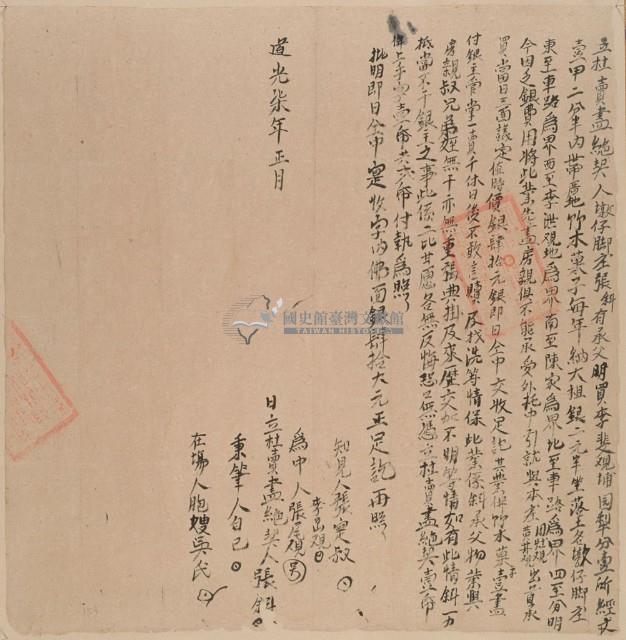 立杜賣盡絕契人墩仔腳庄張斜有承父明買李斐觀埔园犁分壹所經丈
壹甲二分半內世帶厝地竹木菓子每年納大租銀二元半坐落土名墩仔腳庄
東至車路為界西至李洪觀地為界南至陳家為界北至車路為界四至分明
今因乏銀費用將此業先盡房親俱不能承受外托中引就與本庄
出首承
買當日三面議定值時價銀肆拾元銀即日仝中交收足訖其業併竹木菓子壹盡
付銀主管掌一賣千休日後不敢言贖及找洗等情保此業係斜承父物業與
房親叔兄弟姪無干亦無重張典掛及來歷交加不明等情如有此情斜一力
抵當不干銀主之事此係二比甘愿各無反悔恐口無憑立杜賣盡絕契壹帋
併上手字壹帋共弍帋付執為照
批明即日仝中寔收字內佛面銀肆拾大元正足訖再照
知見人張定叔
李昌觀
為中人張尾觀
道光柒年正月
日立杜賣盡絕契人張斜
秉筆人自己
在場人胞嫂吳氏
國史館臺灣文獻館
TAIWAN HISTORICA